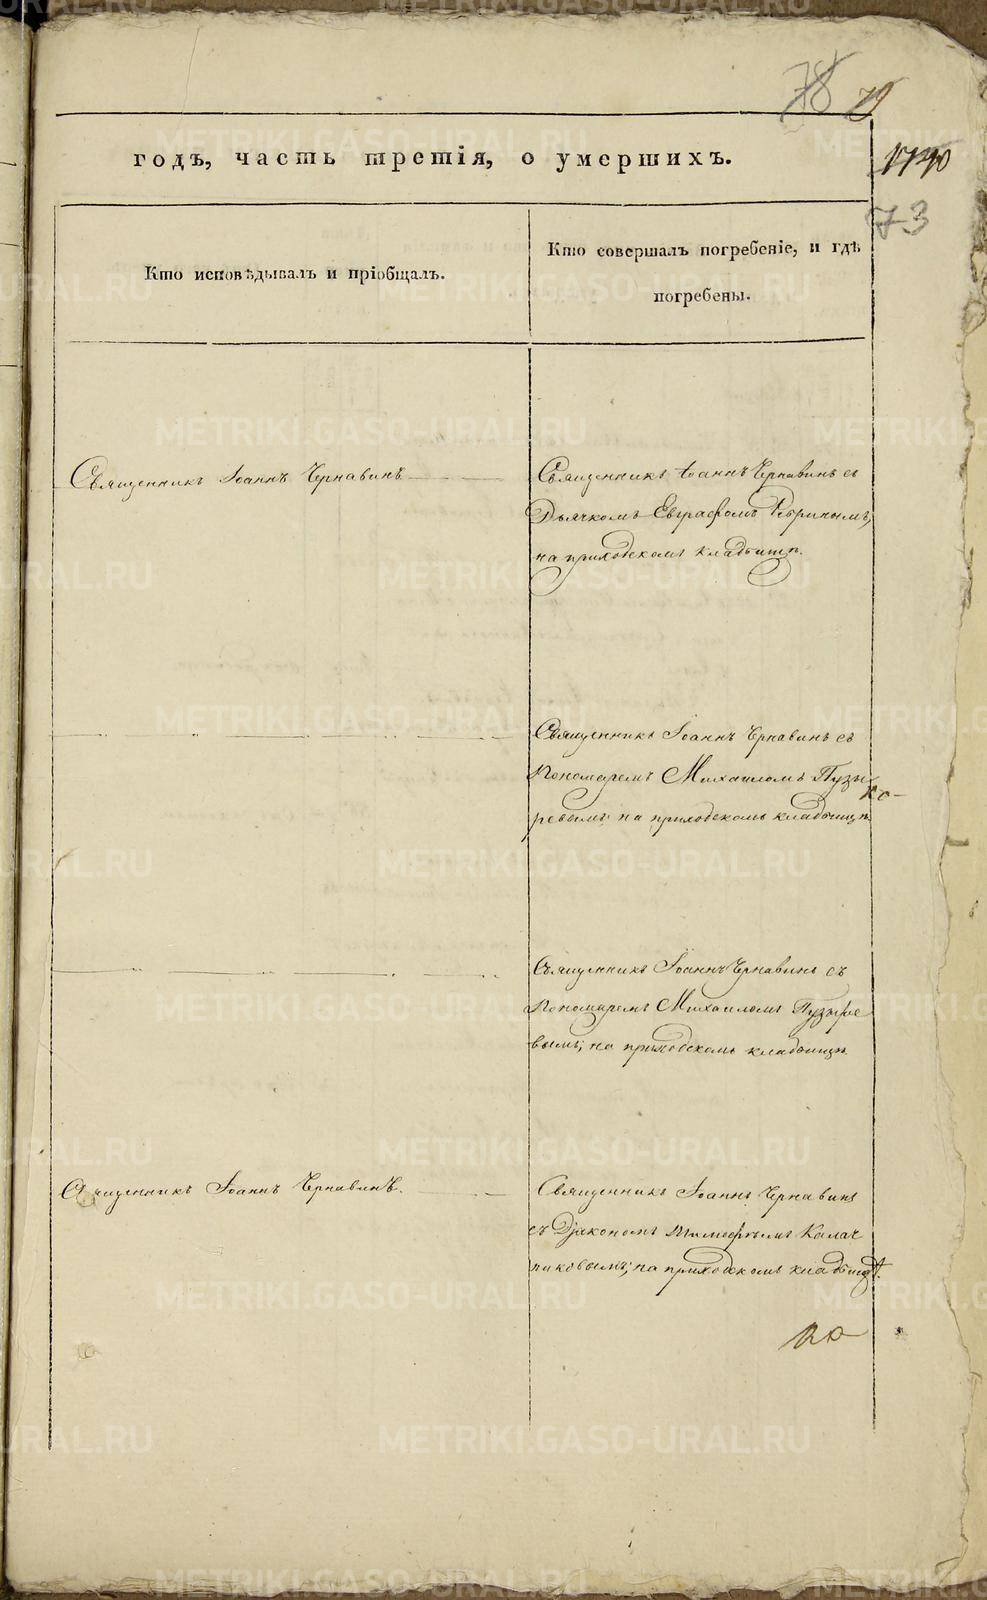 78
годъ, часть третія, о умершихъ.
73
Кто исповѣдывалъ и пріобщалъ.
Кто совершалъ погребеніе, и гдѣ
погребены.
Священникъ Іоаннъ Чернавинъ
Священникъ Іоаннъ Чернавинъ съ
Дьячкомъ Евграфомъ
на приходскомъ кладбищѣ.
Священникъ Іоаннъ Чернавинъ съ
Пономаремъ Михаиломъ Пузы
ревымъ; на приходскомъ кладбищѣ
Священникъ Іоаннъ Чернавинъ съ
Пономаремъ Михаиломъ Пузыре
вымъ; на приходскомъ кладбищѣ
Священникъ Іоаннъ Чернавинъ.
Священникъ Іоаннъ Чернавинъ
съ Діакономъ Тимофеемъ Калач
никовымъ; на приходскомъ кладбищѣ.
METRIKI.GASO-URAL.RU